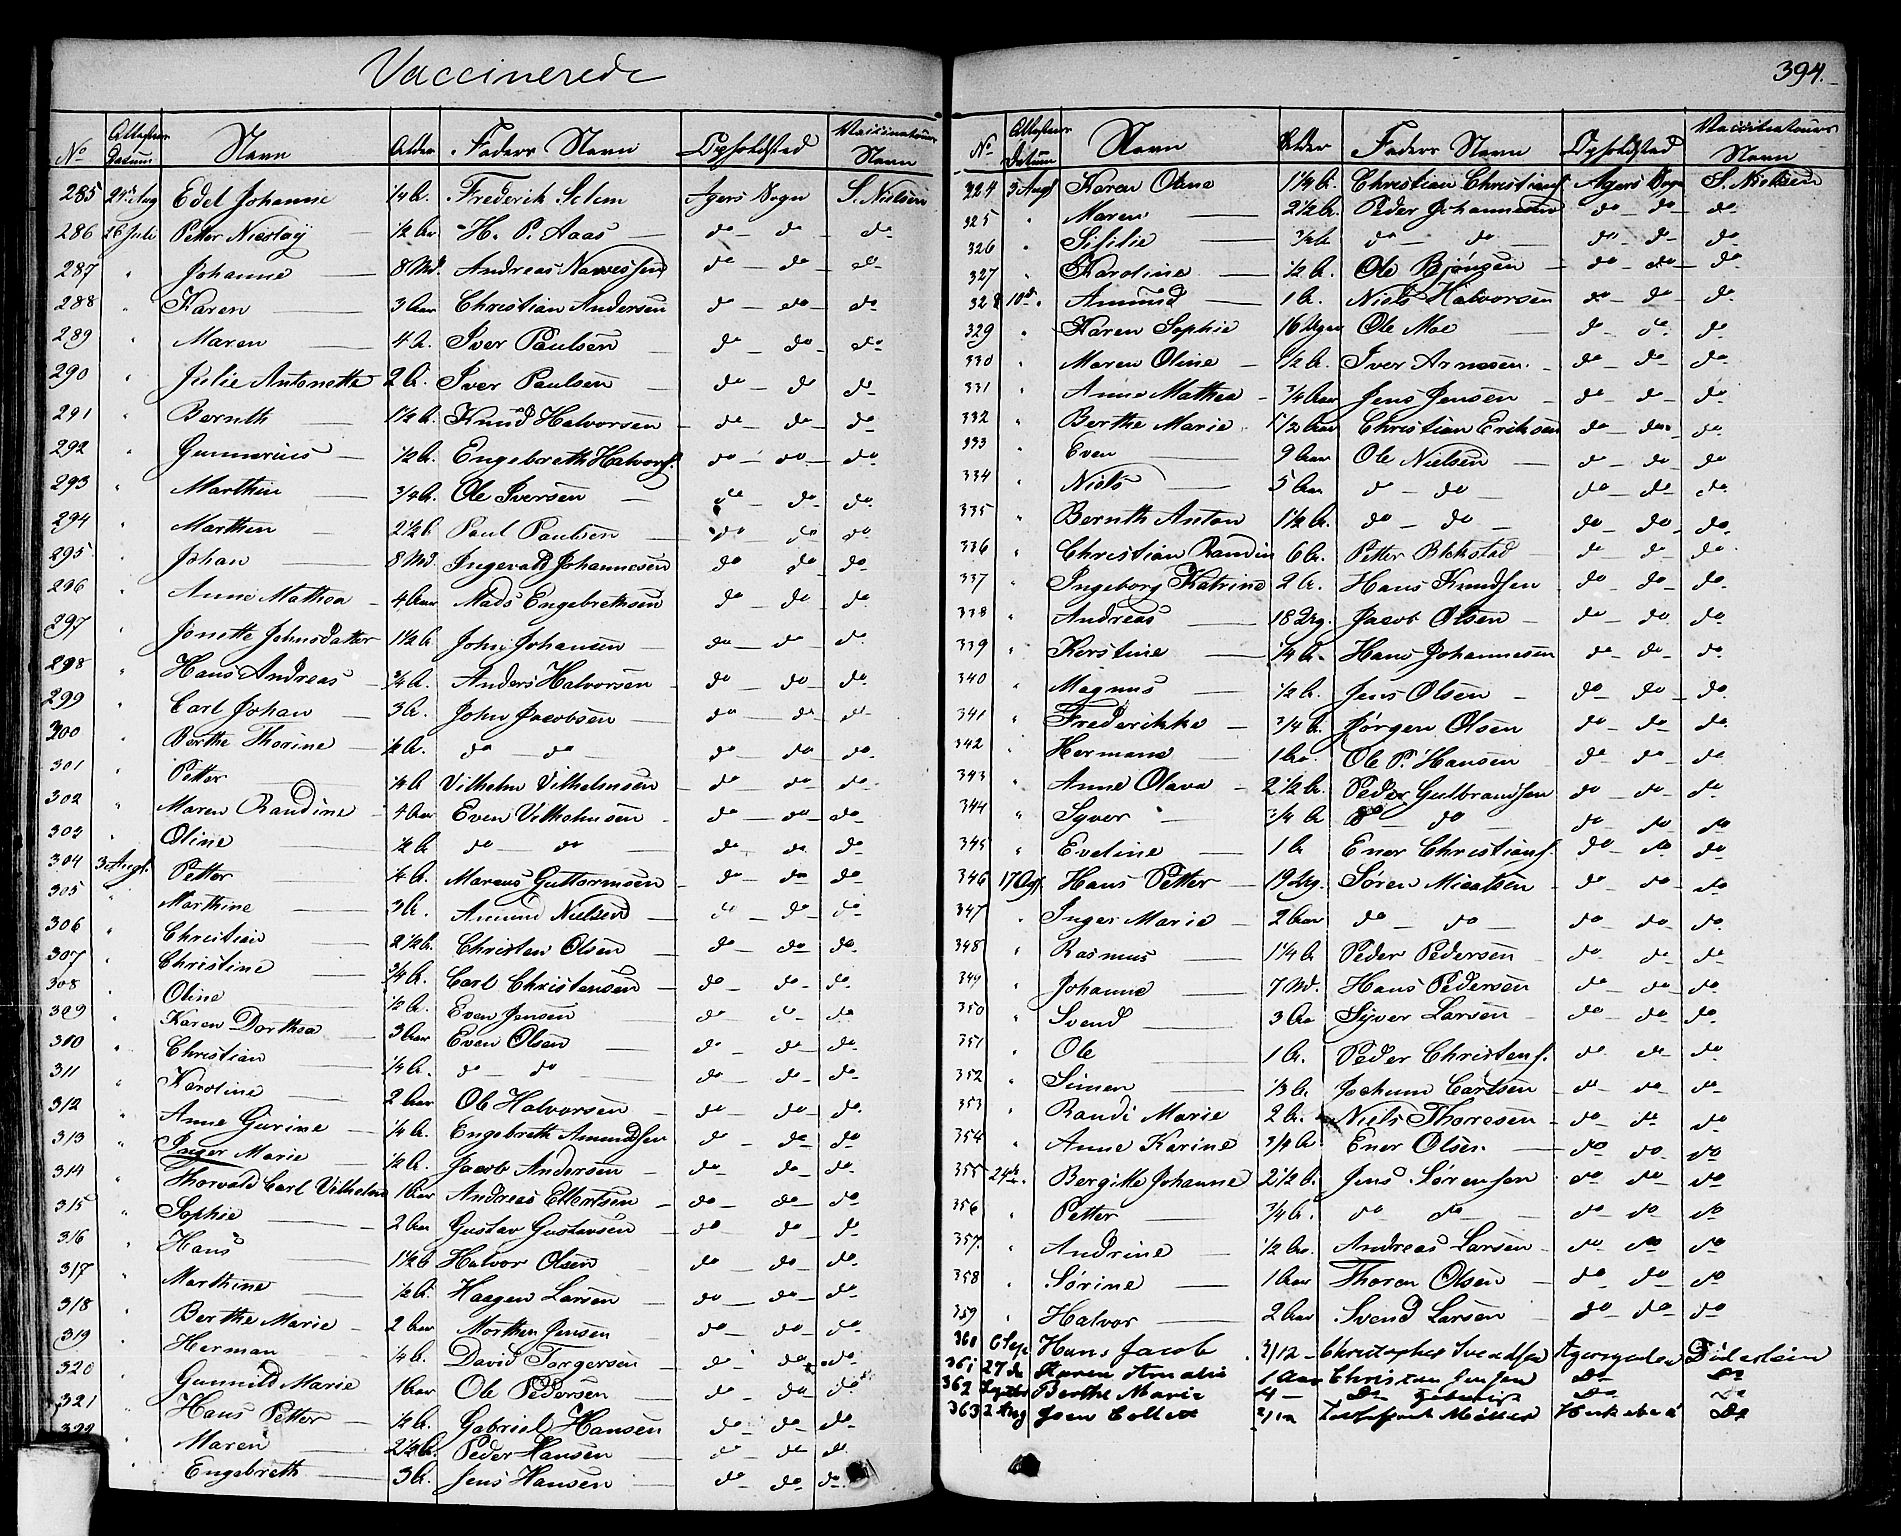 Vaccinerede
No Attestens Datum Navn Alder Faders Navn Opholdsted Vaccinateurs Navn
285 24de Aug Edel Johanne 1/4 A. Frederik Selem Agers Sogn S. Nielsen
286 26 Juli Petter Nicolay 1/2 Aar H. P. Aaas do do do
287 " Johanne 8 Md. Andreas do do do
288 " Karen 3 Aar Christian Andersen do do do
289 " Maren 4 A. Iver Paulsen do do do
290 " Julie Antonette 2 A. Iver Paulsen do do do
291 " Bernth 1 1/2 A. Knud Halvorsen do do do
292 " Gunnerius 1/2 A. Engebreth Halvors. do do do
293 " Marthin 3/4 A. Ole Iversen do do do
294 " Marthin 2 1/2 A. Paul Paulsen do do do
295 " Johan 8 Md. Ingevald Johannesen do do do
296 " Anne Mathea 4 Aar Mads Engebrethsen do do do
297 " Jonette Johnsdatter 1 1/2 A. John Johansen do do do
298 " Hans Andreas 3/4 A. Anders Halvorsen do do do
299 " Carl Johan 3 A. John Jacobsen do do do
300 " Berthe Thorine 1/2 A. do do do do do
301 " Petter 1/4 A. Vilhelm Vilhelmsen do do do
302 " Maren Randine 4 Aar Even Vilhelmsen do do do
303 " Oline 1/2 A. do do do do do
304 3 Augt. Petter 1/2 A. Marcus Guttormsen do do do
305 " Marthine 3 A. Amund Nielsen do do do
306 " Christian 2 1/2 A. Christen Olsen do do do
307 " Christine 3/4 A. Carl Christensen do do do
308 Oline 1/2 A. Even Jensen do do do
309 " Karen Dorthea 3 Aar Even Olsen do do do
310 " Christian 1/4 A. do do do do do
311 " Karoline 2 Aar Ole Halvorsen do do do
312 " Anne Gurine 1/4 A. Engebreth Amundsen do do do
313 " Inger Marie 1/2 A. Jacob Andersen do do do
314 " Thorvald Carl Vilhelm 1 Aar Andreas Ellertsen do do do
315 " Sophie 2 Aar Gustav Gustavsen do do do
316 " Hans 1 1/2 A Halvor Olsen do do do
317 " Marthine 1/2 A. Haagen Larsen do do do
318 " Berthe Marie 2 Aar Morthen Jensen do do do
319 " Herman 1/4 A. David Torgersen do do do
320 " Gunnild Marie 1 Aar Ole Pedersen do do do
321 " Hans Petter 1/2 A. Gabriel Hansen do do do
322 " Maren 2 1/2 A. Peder Hansen do do do
" Engebreth 3 A. Jens Hansen do do do
394.
No Attestens Datum Navn Alder Faders Navn Opholdsted Vaccinateurs Navn
324 3 Aug Karen Oline 1 1/4 A. Christian Christians. Agers Sogn S. Nielsen
325 " Maren 2 1/2 A. Peder Johannesen do do do
326 " Sisilie 3/4 A do do do do do
327 " Karoline 1/2 A. Ole Bjønsen do do do
328 10de " Amund 1 A. Niels Halvorsen do do do
329 " Karen Sophie 16 Uger Ole Moe do do do
330 " Maren Oline 1/2 A. Iver Arnesen do do do
331 " Anne Mathea 3/4 Aar Jens Jensen do do do
332 " Berthe Marie 1 1/2 Aar Christian Eriksen do do do
333 " Even 9 Aar Ole Nielsen do do do
334 " Niels 5 Aar do do do do do
335 " Bernth Anton 1 1/2 A. do do do do do
336 " Christian Randin 6 A. Petter Blekstad do do do
337 " Ingeborg Katrine 2 A. Hans Knudsen do do do
338 " Andreas 18 Ug. Jacob Olsen do do do
339 " Kerstine 1/4 A. Hans Johannesen do do do
340 " Magnus 1/2 A. Jens Olsen do do do
341 " Frederikke 3/4 A. Jørgen Olsen do do do
342 " Hermana 1 Aa. Ole P. Hansen do do do
343 " Anne Olava 2 1/2 A. Peder Gulbrandsen do do do
344 " Syver 3/4 A do do do do do
345 " Eveline 1 A Ener Christians. do do do
346 17 Aug Hans Petter 19 Ug. Søren do do do
347 " Inger Marie 2 Aar do do do do do
348 " Rasmus 1 1/4 A Peder Pedersen do do do
349 " Johanne 7 Md. Hans Pedersen do do do
350 " Svend 3 Aa Syver Larsen do do do
351 " Ole 1 A. Peder Christens. do do do
352 " Simen 1/3 A. Jochum Carlsen do do do
353 " Randi Marie 2 A. Niels Thoresen do do do
354 " Anne Karine 3/4 A Ener Olsen do do do
355 24de. Bergitte Johanne 2 1/2 A. Jens Sørensen do do do
356 " Petter 3/4 A. do do do do do
357. " Andrine 1/2 Aa. Andreas Larsen do do do
358 " Sørine 1 Aar Thoren Olsen do do do
359 " Halvor 2 Aar Svend Larsen do do do
360 6 Sep Hans Jacob 3/12 Christopher Svendsen Døderlein
361 27 do Karen Amalie 1 Aar Christian Jensen Do Do
362 Berthe Marie 4 Do Do Do
363 2 Aug Joen Collett 3/12 Møller Do